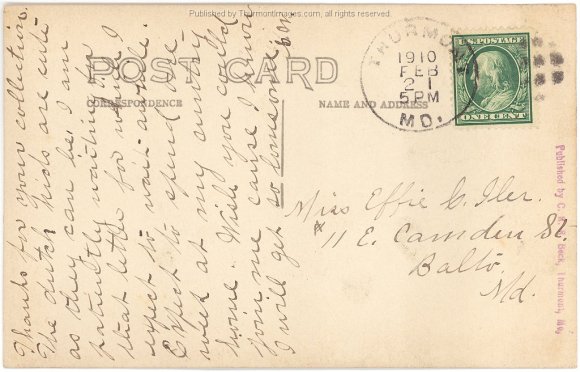 Published by Thurmontimages.com, all rights reserved.
POST CARD
CORRESPONDENCE
NAME AND ADDRESS
THURMONT
1910
FEB
21
5PM
MD.
U.S. POSTAGE
ONE CENT
Miss Effie C. Iler.
11 E. Camden St.
Balto.
Md.
Thanks for your collection.
The dutch kids are cute
as they can be. I am
patiently waiting for
that letter for which I
expect to wait awhile.
Expect to spend the
week at my country
home. Wish you could
join me cause I know
I will get so lonesome.
Published by C. Beck, Thurmont, Md.